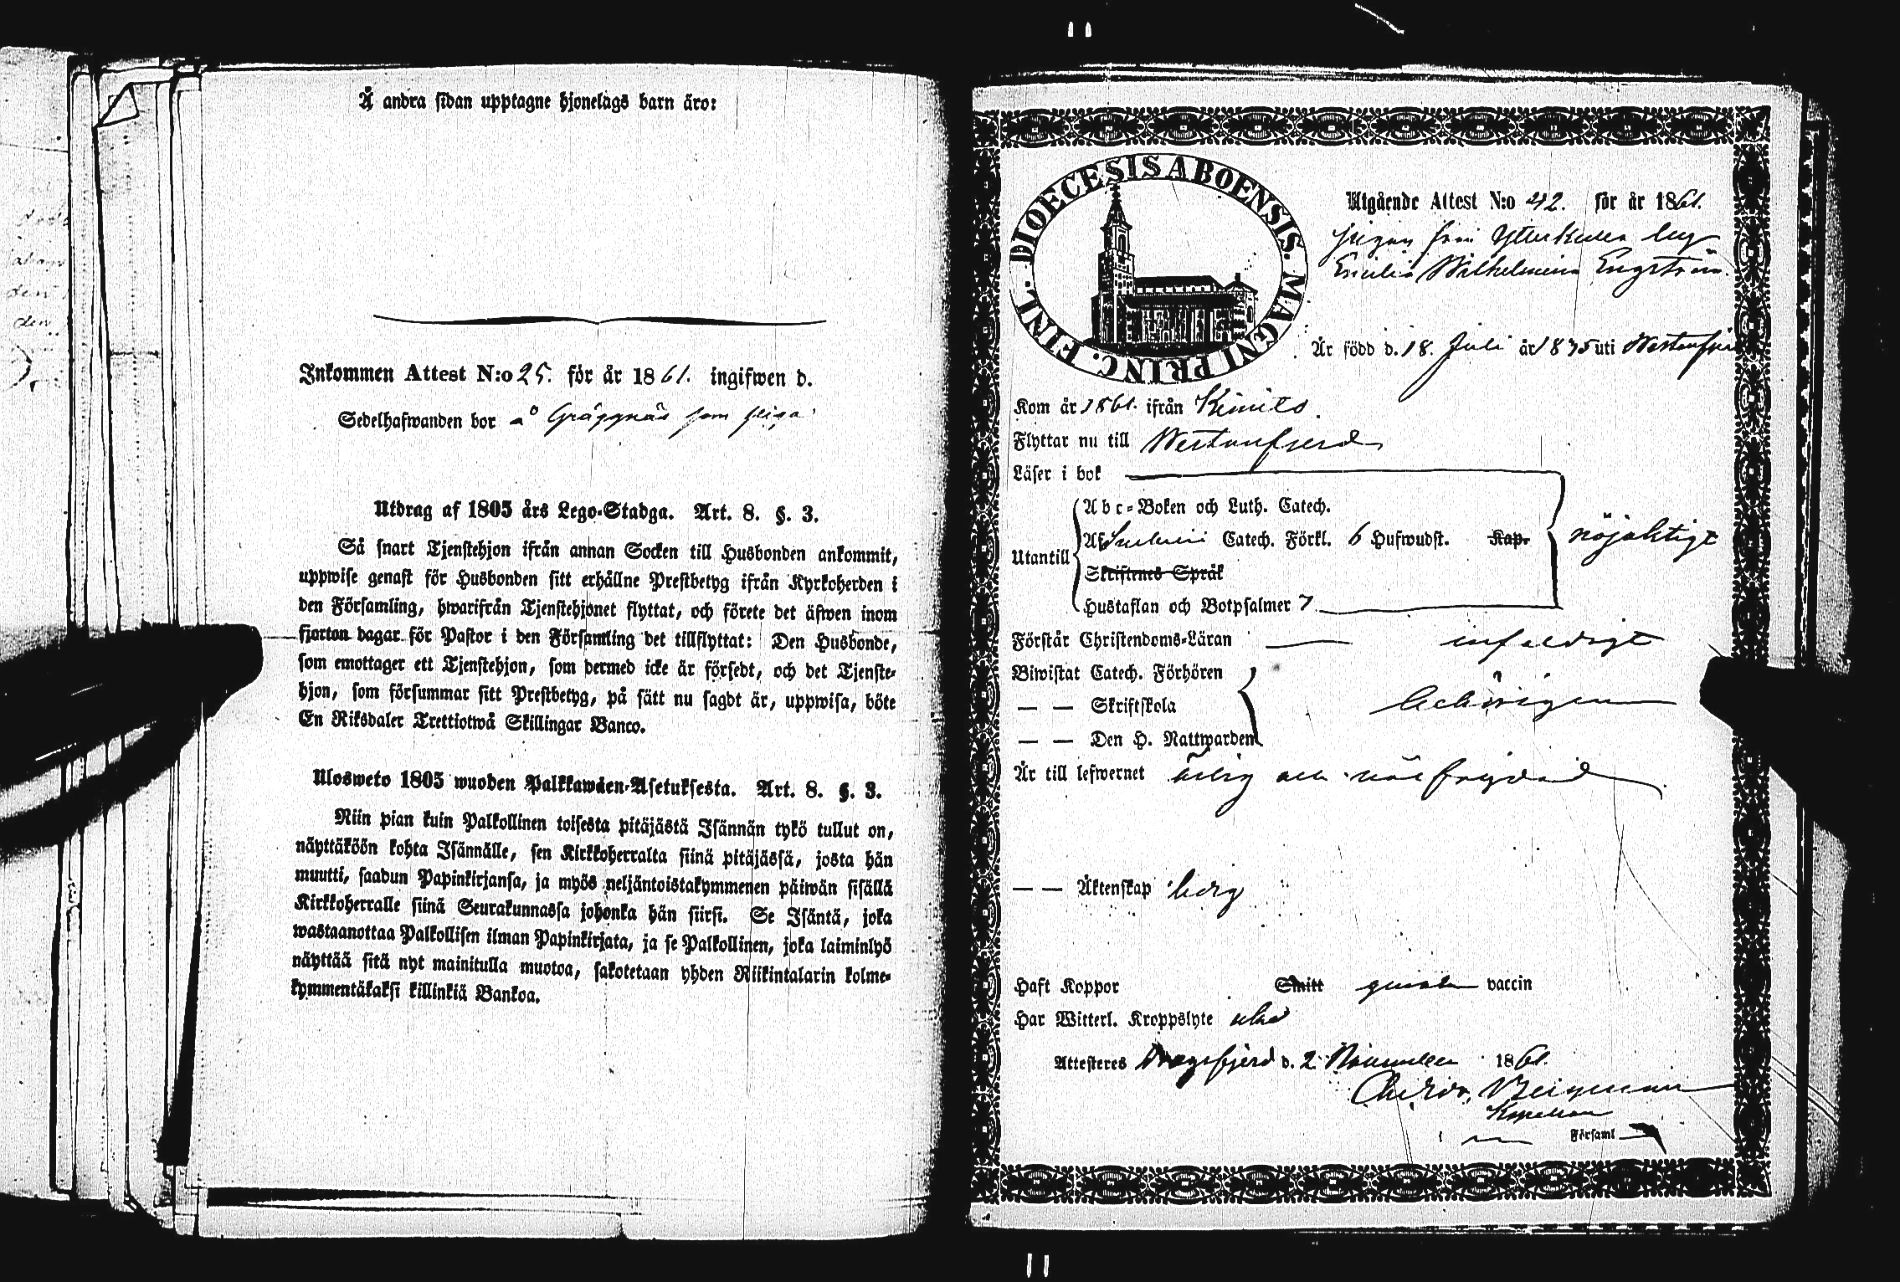 Å andra sidan upptagne hjonelags barn äro:
Inkommen Attest N:o 25. för år 1861. ingifwen d.
Sedelhafwanden bor å Gräggnäs som piga
Utdrag af 1805 års Lego-Stadga. Art. 8. §. 3.
Så snart Tjenstehjon ifrån annan Socken till Husbonden ankommit,
uppwise genast för Husbonden sitt erhållne Prestbetyg ifrån Kyrkoherden i
den Församling, hwarifrån Tjenstehjonet flyttat, och förete det äfwen inom
fjorton dagar för Pastor i den Församling det tillflyttat: Den Husbonde,
som emottager ett Tjenstehjon, som dermed icke är försedt, och det Tjenste-
hjon, som försummar sitt Prestbetyg, på sätt nu sagdt är, uppwisa, böte
En Riksdaler Trettiotwå Skillingar Banco.
Ulosweto 1805 wuoden Palkkawäen-Asetuksesta. Art. 8. §. 3.
Niin pian kuin Palkollinen toisesta pitäjästä Isännän tykö tullut on,
näyttäköön kohta Isännälle, sen Kirkkoherralta siinä pitäjässä, josta hän
muutti, saadun Papinkirjansa, ja myös neljäntoistakymmenen päiwän sisällä
Kirkkoherralle siinä Seurakunnassa johonka hän siirsi. Se Isäntä, joka
wastaanottaa Palkollisen ilman Papinkirjata, ja se Palkollinen, joka laiminlyö
näyttää sitä nyt mainitulla muotoa, sakotetaan yhden Riikintalarin kolme-
kymmentäkaksi killinkiä Bankoa.
FINL. DIOECESIS ABOENSIS. MAGNI PRINC.
Utgående Attest N:o 42. för år 1861.
pigan från Ytterkulla
Wilhelmina Engström
Är född d. 18. Juli år 1835 uti Westanfjerd
Kom år 1861. ifrån Kimito.
Flyttar nu till Westanfjerd
Läser i bok
Utantill
Abc-Boken och Luth. Catech.
Af Catech. Förkl. 6 Hufwudst. Kap. nöjaktigt
Skriftenes Språk
Hustaflan och Botpsalmer 7
Förstår Christendoms-Läran enfaldigt
Biwistat Catech. Förhören
— — Skriftskola behörigen
— — Den H. Nattwarden
Är till lefwernet ärlig och välfrejdad
— — Äktenskap ledig
Haft Koppor Smitt genom vaccin
Har Witterl. Kroppslyte utan
Attesteres Dragsfjerd d. 2 November 1861.
Bergman
Kapellan
Församl